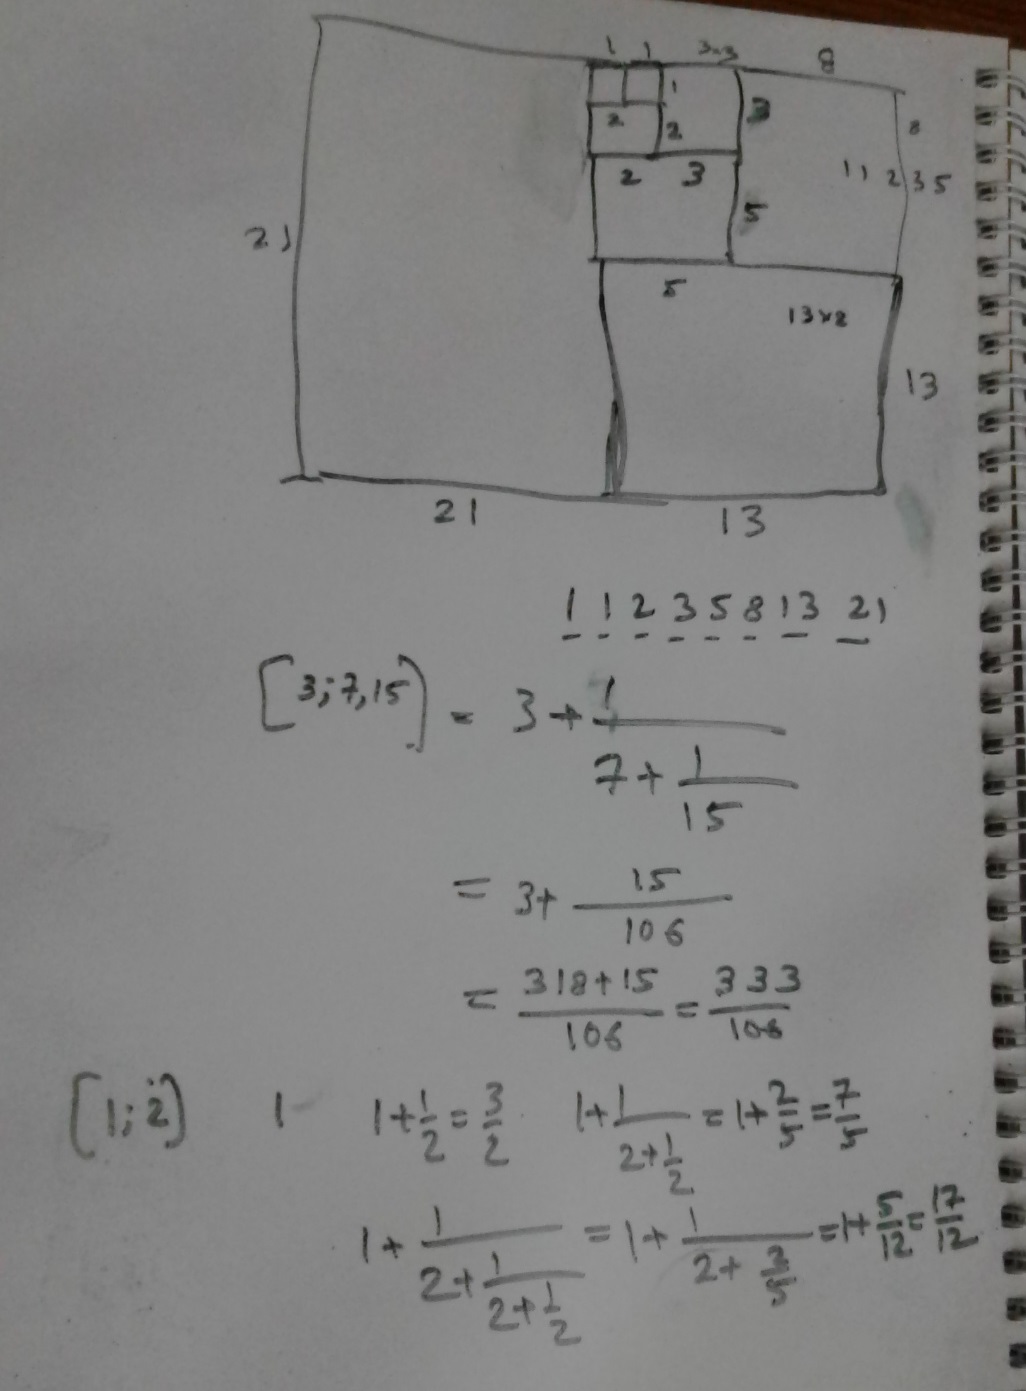 1 1 3×3 8
1 3 8
2 2
1 1 2 3 5
2 3
5
21
5
13×8
13
21 13
1 1 2 3 5 8 13 21
[3;7,15] = 3 + 1/(7 + 1/15)
= 3 + 15/106
= (318+15)/106 = 333/106
[1;2̇] 1 1+1/2 = 3/2 1+1/(2+1/2) = 1+2/5 = 7/5
1+1/(2+1/(2+1/2)) = 1+1/(2+2/5) = 1+5/12 = 17/12